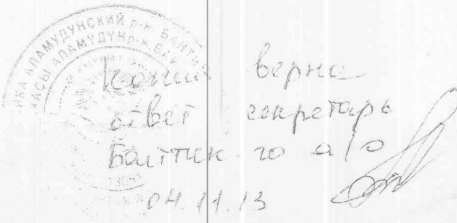 АЛАМУДУНСКИЙ Р-Н БАЙТИК
АЛАМҮДҮН Р-Н
Копия верна
ответ секретарь
Байтик-го а/о
04.11.13